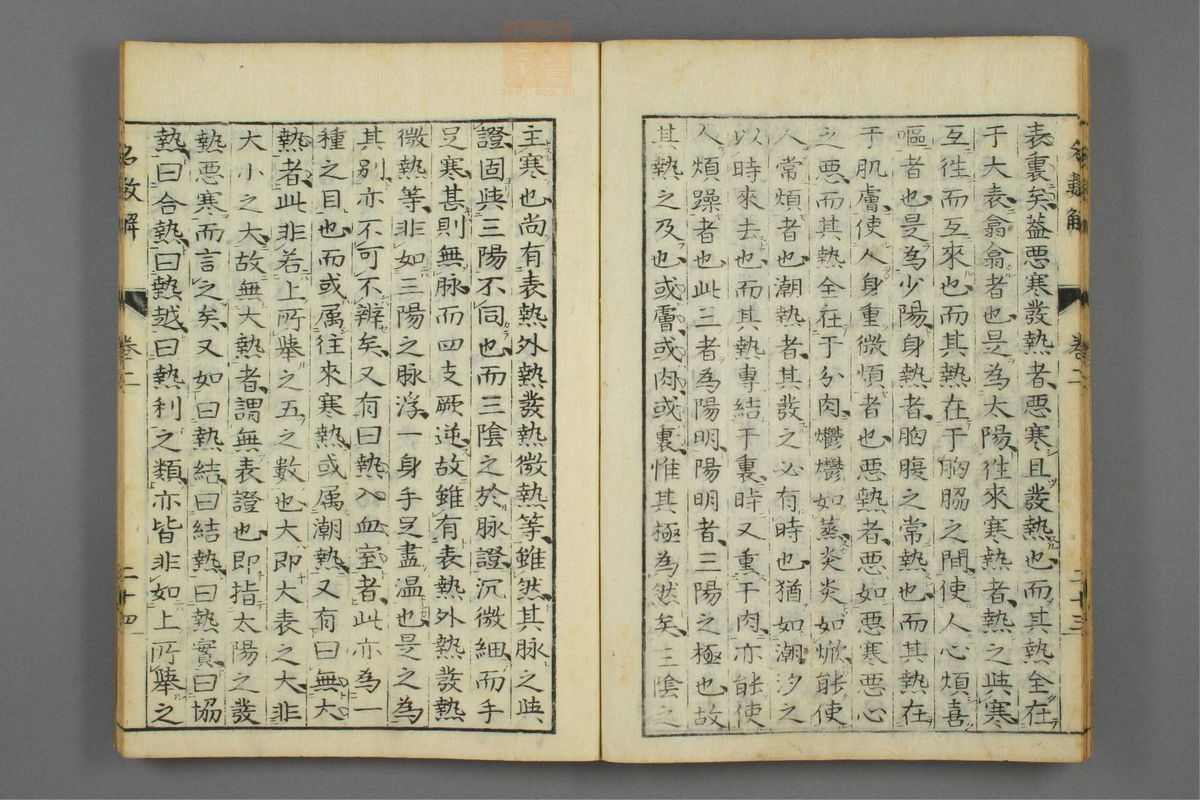 表裏矣蓋悪寒發熱者悪寒且發熱也而其熱全在
于大表翕翕者也是為太陽徃來寒熱者熱之與寒
互徃而互來也而其熱在于胸脇之間使人心煩喜
嘔者也是為少陽身熱者胸腹之常熱也而其熱在
于肌膚使人身重微煩者也悪熱者悪如悪寒悪心
之悪而其熱全在于分肉爩爩如蒸炎炎如焮能使
人常煩者也潮熱者其發之必有時也猶如潮汐之
以時來去也而其熱專結于裏時又熏于肉亦能使
人煩躁者也此三者為陽明陽明者三陽之極也故
其熱之及也或膚或肉或裏惟其極為然矣三陰之
名數解 卷二 二十三
主寒也尚有表熱外熱發熱微熱等雖然其脉之與
證固與三陽不同也而三陰之於脉證沉微細而手
足寒甚則無脉而四支厥逆故雖有表熱外熱發熱
微熱等非如三陽之脉浮一身手足盡温也是之為
其別亦不可不辨矣又有曰熱入血室者此亦為一
種之目也而或属往來寒熱或属潮熱又有曰無大
熱者此非若上所舉之五之數也大即大表之大非
大小之大故無大熱者謂無表證也即指太陽之發
熱悪寒而言之矣又如曰熱結曰結熱曰熱實曰協
熱曰合熱曰熱越曰熱利之類亦皆非如上所舉之
名數解 卷二 二十四